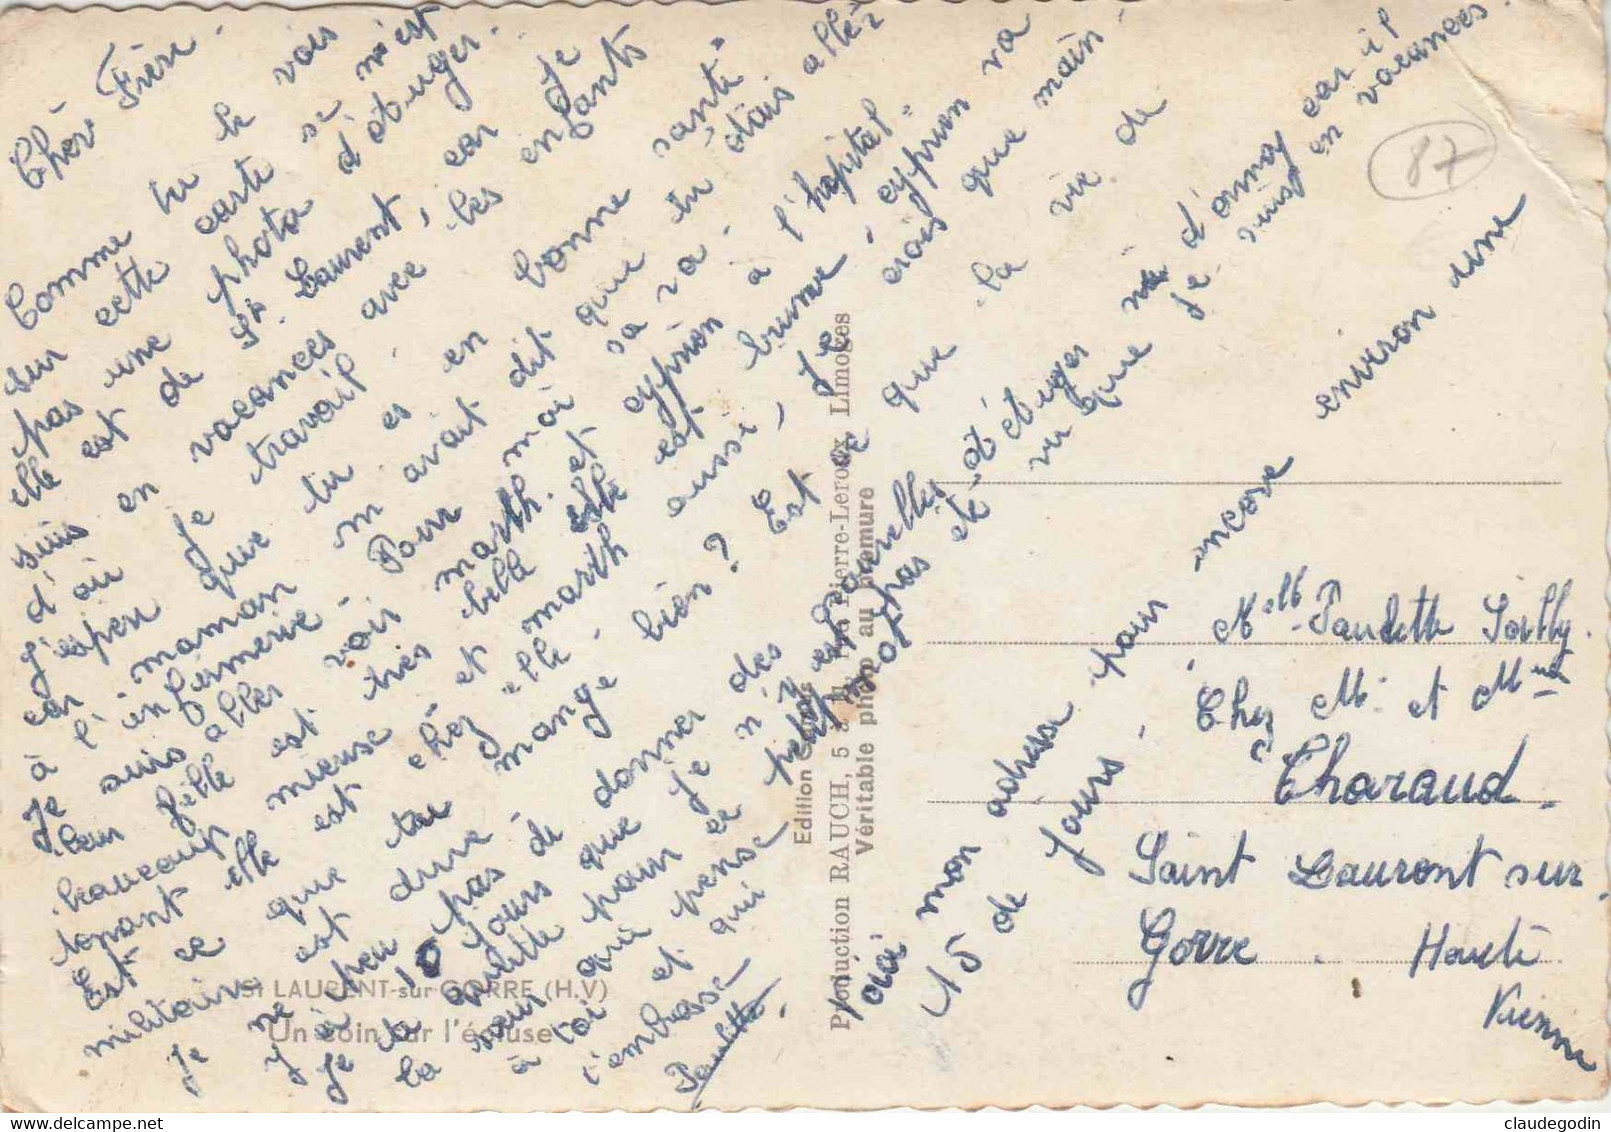 Cher Frère.
Comme tu le vois
sur cette carte se n'est
pas une photo d'étuger.
elle est de St. Laurent, car je
suis en vacances avec les enfants
d'où je travail.
J'esper que tu es en bonne santé
car maman m'avait dit que tu étais allez
à l'infirmerie. Pour moi sa va.
Je suis aller voir marth. et cyprien à l'hopital
leur fille est très belle elle est brune. cyprien va
beaucoup mieuse et marth aussi, je crois que main
tenant elle est chez elle.
Est ce que tu mange bien? Est ce que la vie de
militaire est dure.
Je ne peu pas de donner des nouvelles d'étuger ni d'annay car il
y a 10 jours que je n'y est pas été vu que je suis en vacances.
Je te quitte pour ce
la soeur qui pense
à toi et qui
t'embrasse
Paulette.
voici mon adresse pour encore environ une
15 de jours.
Melle Paulette
Chez M. et Mme
Tharaud.
Saint Laurent sur
Gorre. Haute
Vienne
87
St LAURENT-sur-GORRE (H.V)
Un coin sur l'écluse
Production RAUCH, 5 Pierre-Leroux, Limoges
Véritable photo au bromure
claudegodin